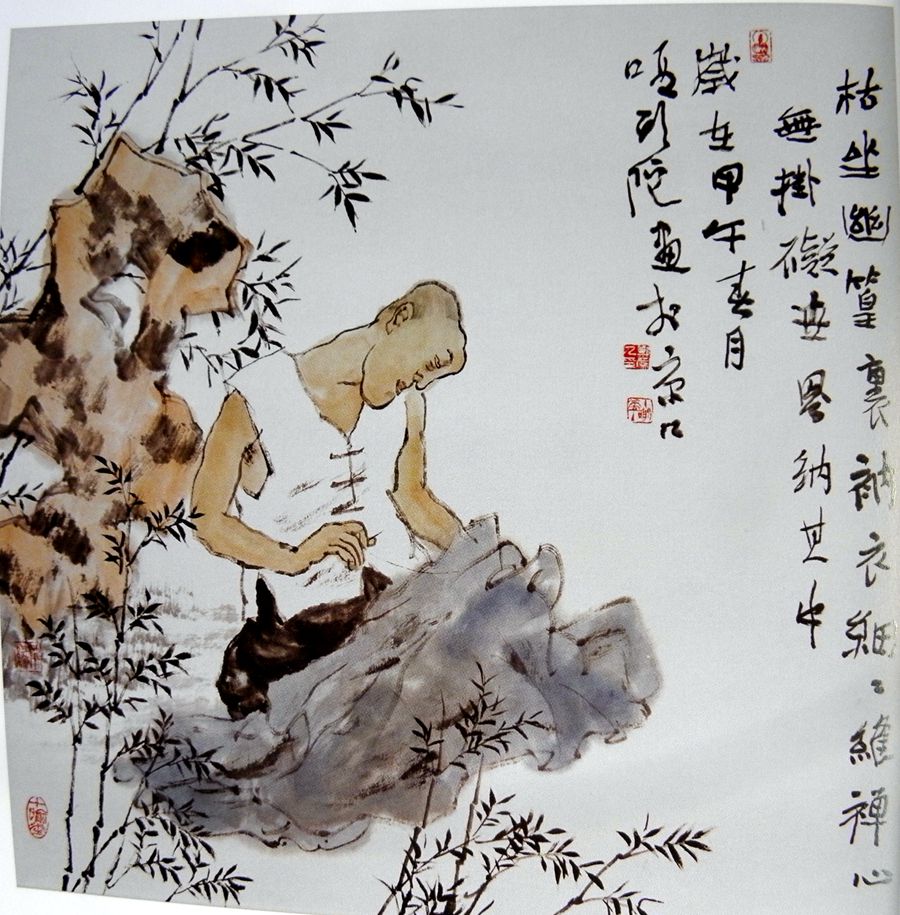 枯坐幽篁裏衲衣細〻縫禪心
無掛礙世界納其中
歲在甲午春月
頭陀畫於京口